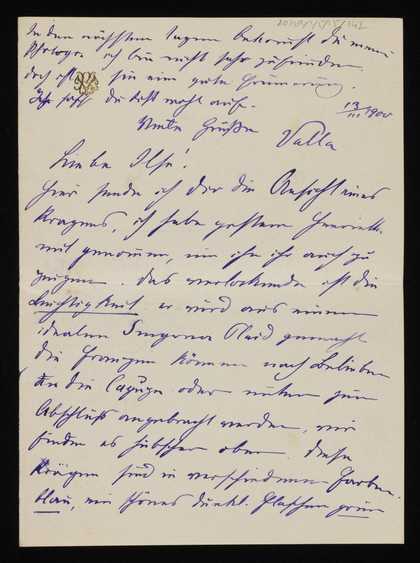 In den nächsten Tagen bekommst du meine
Photogr. ich bin nicht sehr zufrieden
doch ist sie eine gute Erinnerung.
Ich hoffe du hebst wohl auf.
13/III 1900
Viele Grüße Valla
Liebe Ilse!
Hier sende ich dir die Ansicht eines
Kragens, ich habe gestern Henriette
mit genommen, um ihn ihr auch zu
zeigen. das verlockende ist die
Leichtigkeit er wird aus einem
idealen Plaid gemacht
die Fransen können nach Belieben
an die Capuze oder unten zum
Abschluß angebracht werden, wir
finden es hübscher oben. diese
Krägen sind in verschiedenen Farben.
blau, ein schönes dunkl. flaschen grün